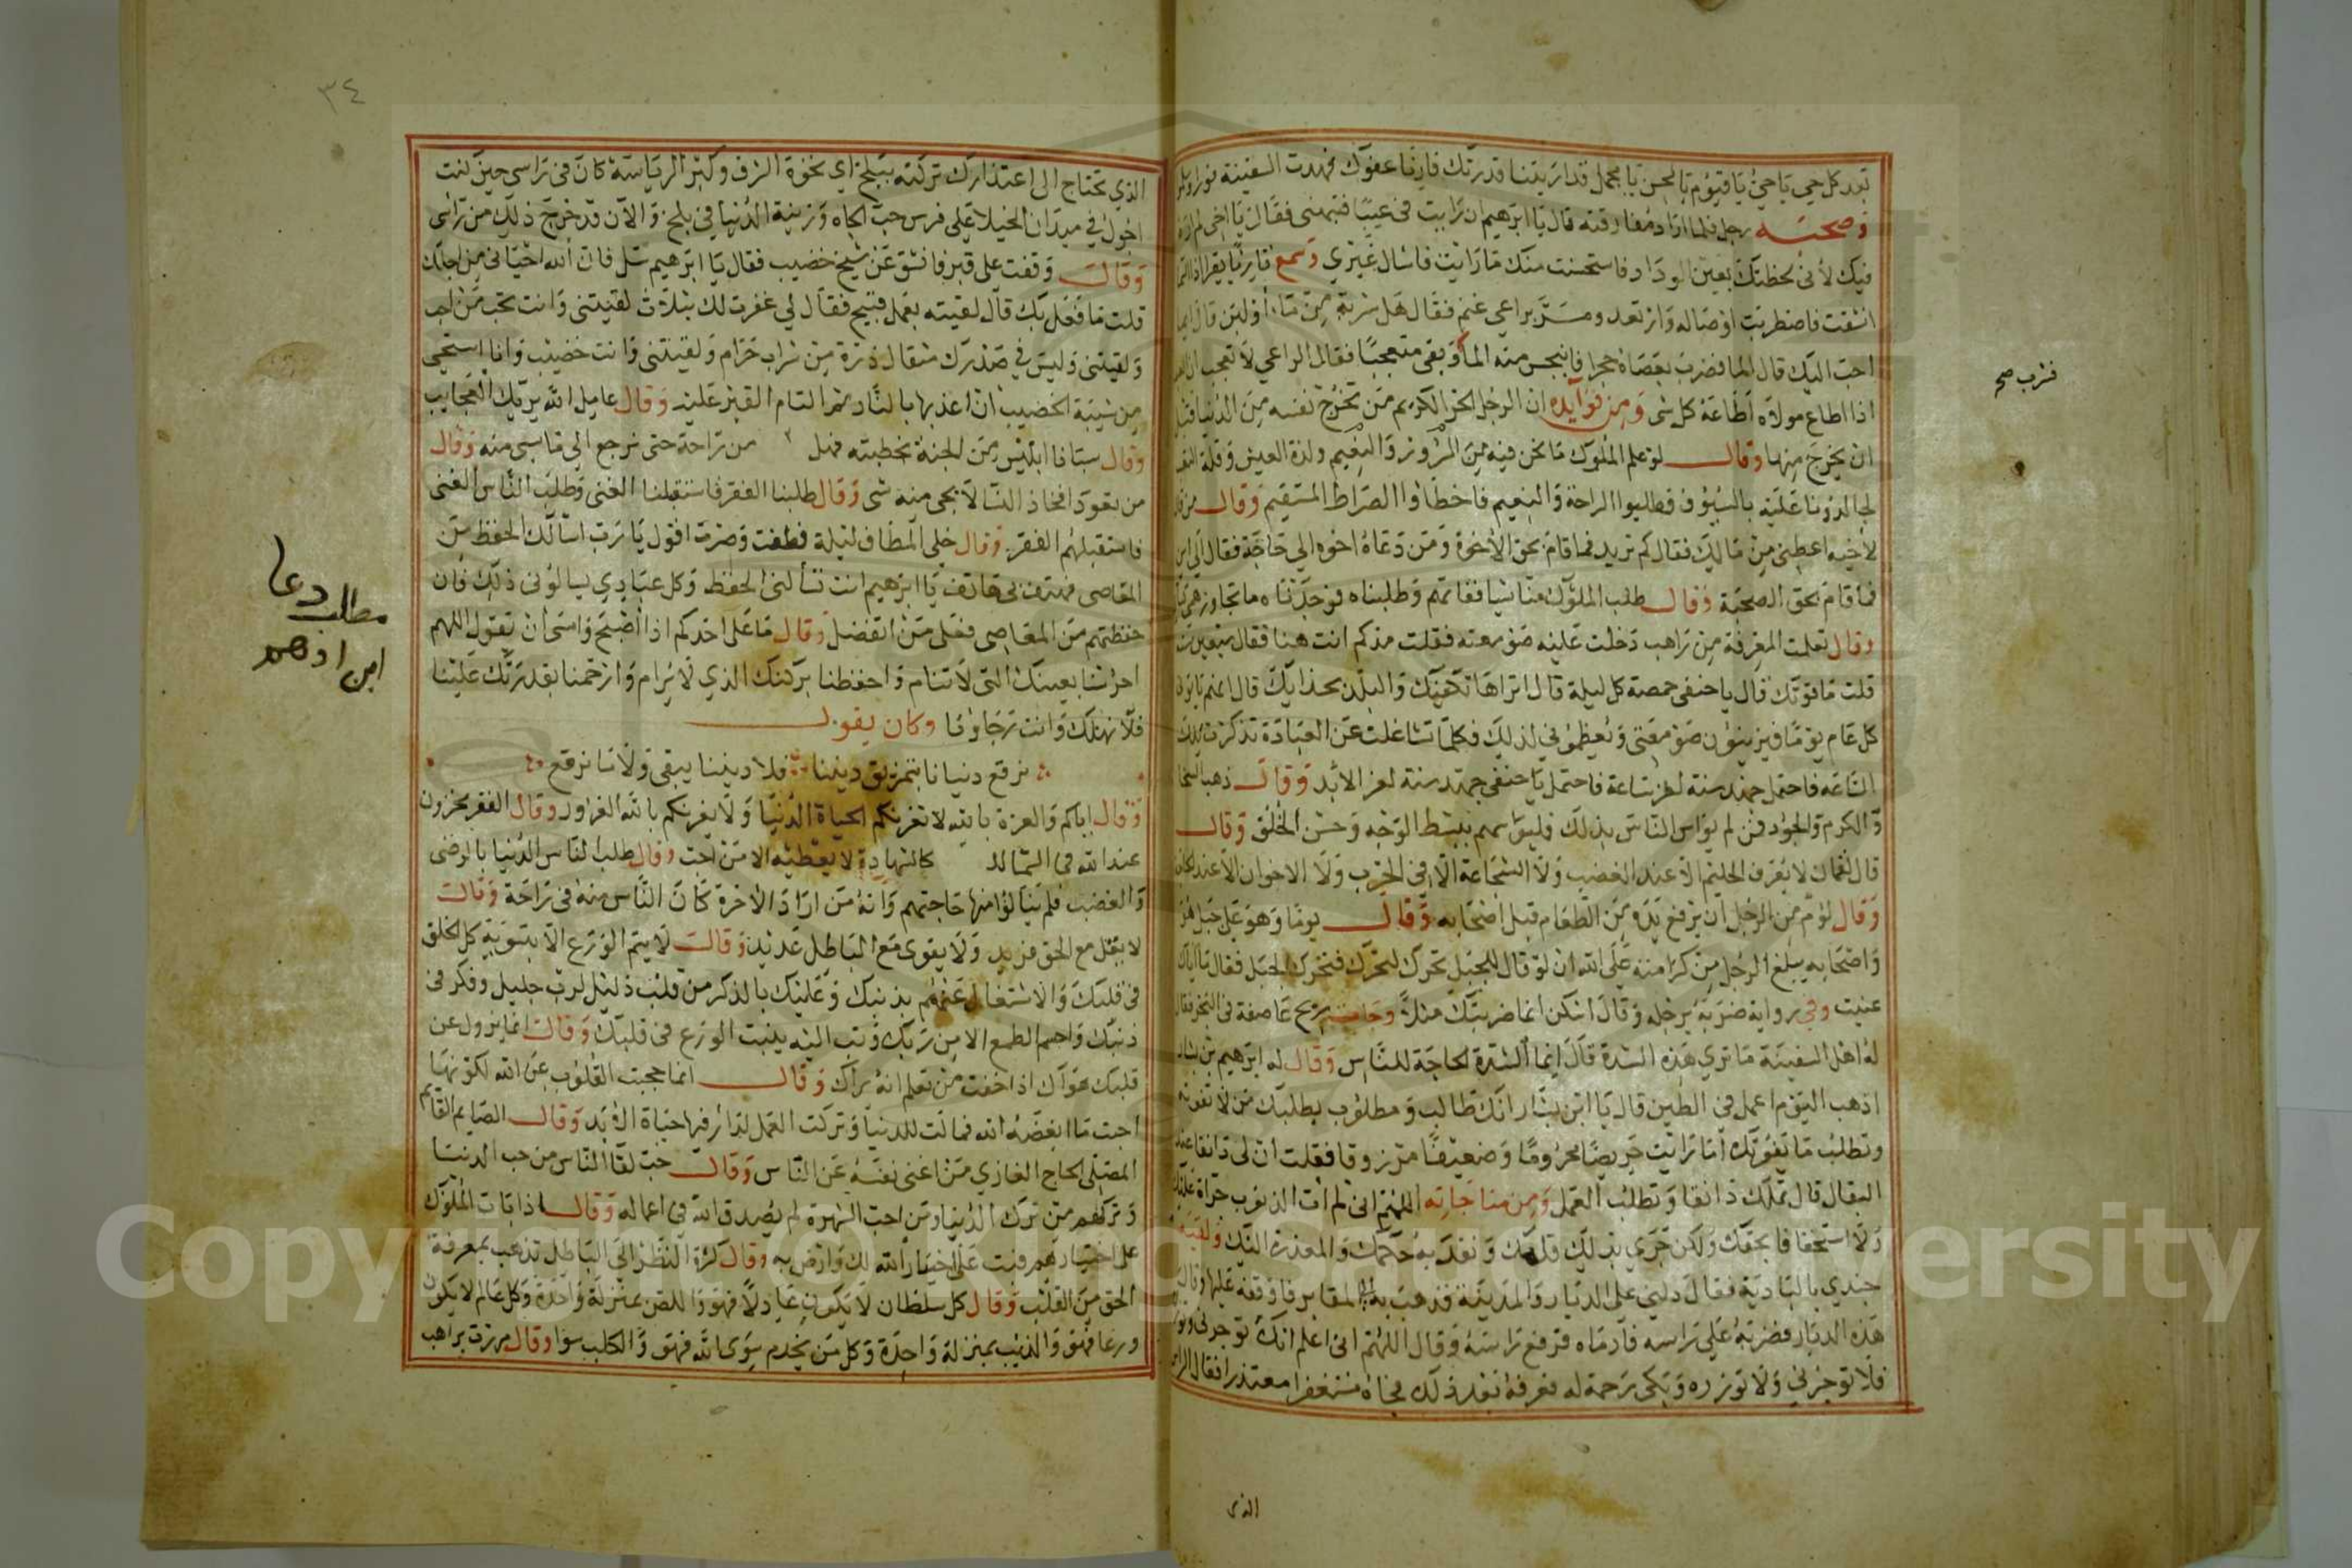 بعد كل حي يا حي يا قيوم يا محسن يا مجمل قد اريتنا قدرتك فارنا عفوك فهدت السفينة فورا
وصحبه رجل فلما اراد مفارقته قال يا ابرهيم ان رايت في عيبا فنبهني فقال يا اخي لم ار
فيك لأني لحظتك بعين الوداد فاستحسنت منك ما رايت فاسال غيري وسمع قاريا يقرا اذا السما
انشقت فاضطربت اوصاله وارتعد ومر براعي غنم فقال هل شربة من ماء أو لبن قال ايما
احب اليك قال الما فضرب بعصاه حجرا فانبجس منه الما وبقي متعجبا فقال الراعي لا تعجب ان العبد
اذا اطاع مولاه اطاعه كل شي ومن فوايده ان الرجل الحر الكريم من تخرج نفسه من الدنيا قبل
ان يخرج منها وقال لو علم الملوك ما نحن فيه من السرور والنعيم ولذة العيش وقلة التعب
لجالدونا عليه بالسيوف فطلبوا الراحة والنعيم فاخطاوا الصراط المستقيم وقال من قال
لاخيه اعطني من مالك فقال كم تريد فما قام بحق الأخوة ومن دعاه اخوه الي حاجة فقال الي اين
فما قام بحق الصحبة وقال طلب الملوك منا شيا ففاتهم وطلبناه فوجدناه ما تجاوز همي
وقال تعلمت المعرفة من راهب دخلت عليه صومعته فقلت مذ كم انت هنا فقال سبعين سنة
قلت ما قوتك قال يا حنفي حمصة كل ليلة قال اتراها تكفيك والبلد بحذايك قال انهم ياتوني
كل عام يوما فيزينون صومعتي ويعظموني لذلك فكلما تثاغلت عن العبادة تذكرت تلك
الساعة فاحتمل جهد سنة لعز ساعة فاحتمل يا حنفي جهد سنة لعز الابد وقال ذهب السخا
والكرم والجود فمن لم يواس الناس بذلك فليواسهم ببسط الوجه وحسن الخلق وقال
قال لقمان لا يعرف الحليم الا عند الغضب ولا الشجاعة الا في الحرب ولا الاخوان الا عند الحاجة
وقال لؤم من الرجل ان يرفع يده من الطعام قبل اصحابه وقال يوما وهو علي جبل هو
واصحابه يبلغ الرجل من كرامته على الله ان لو قال للجبل تحرك لتحرك فتحرك الجبل فقال ما اياك
عنيت وفي رواية ضربه برجله وقال اسكن انما ضربتك مثلا وجاءت ريح عاصفة في البحر فقال
له اهل السفينة ما تري هذه الشدة قال انما الشدة الحاجة للناس وقال له ابرهيم بن بشار
اذهب اليوم اعمل في الطين قال يا ابن بشار انك طالب ومطلوب يطلبك من لا تفوته
وتطلب ما يفوتك أما رايت حريصا محروما وضعيفا مرزوقا فقلت ان لي دانقا عند
البقال قال تملك دانقا وتطلب العمل ومن مناجاته اللهم اني لم ات الذنوب جراة عليك
ولا استخفافا بحقك ولكن جري بذلك قلمك ونفذ به حكمك والمعذرة اليك ولقيه
جندي بالبادية فقال دلني على الديار والمدينة فذهب به الي المقابر فاوقفه عليها وقال
هذه الديار فضربه علي راسه فادماه فرفع راسه وقال اللهم اني اعلم انك توجرني وتوزره
فلا توجرني ولا توزره وبكى رحمة له فعرفه بعد ذلك فجاه مستغفرا معتذرا فقال الراس
الذي
فضرب صح
٣٤
الذي تحتاج الى اعتذارك تركته ببلخ اي نخوة الشرف وكبر الرياسة كان في راسي حين كنت
اجول في ميدان الخيلا علي فرس حب الجاه وزينة الدنيا في بلخ والآن قد خرج ذلك من راسي
وقال وقفت على قبر فانشق عن شيخ خضيب فقال يا ابرهيم سل فان الله احياني من اجلك
قلت ما فعل بك قال لقيته بعمل قبيح فقال لي غفرت لك بثلاث لقيتني وانت تحب من احب
ولقيتني وليس في صدرك مثقال ذرة من شراب حرام ولقيتني وانت خضيب وانا استحي
من شيبة الخضيب ان اعذبها بالنار ثم التام القبر عليه وقال عامل الله يريك العجايب
وقال سبانا ابليس من الجنة بخطيته فهل من راحة حتى نرجع الي ما سبي منه وقال
من تعود افخاذ النسا لا يجي منه شي وقال طلبنا الفقر فاستقبلنا الغنى وطلب الناس الغنى
فاستقبلهم الفقر وقال خلي المطاف ليلة فطفت وصرت اقول يا رب اسالك الحفظ من
المعاصي فهتف بي هاتف يا ابرهيم انت تسألني الحفظ وكل عبادي يسالوني ذلك فان
حفظتهم من المعاصي فعلى من اتفضل وقال ما على احدكم اذا اصبح وامسى ان يقول اللهم
احرسنا بعينك التي لا تنام واحفظنا بركنك الذي لا يرام وارحمنا بقدرتك علينا
فلا نهلك وانت رجاونا وكان يقول
نرقع دنيانا بتمزيق ديننا فلا ديننا يبقى ولا ما نرقع
وقال اياكم والعزة بالله لا تغرنكم الحياة الدنيا ولا يغرنكم بالله الغرور وقال الفقر مخزون
عند الله في السما كالشهادة لا يعطيه الا من احب وقال طلب الناس الدنيا بالرضى
والغضب فلم ينالوا منها حاجتهم وانه من اراد الاخرة كان الناس منه في راحة وقال
لا يقل مع الحق فريد ولا يقوى مع الباطل عديد وقال لا يتم الورع الا بتسوية كل الخلق
في قلبك والاشتغال عنهم بذنبك وعليك بالذكر من قلب ذليل لرب جليل وفكر في
ذنبك واحسم الطمع الا من ربك وتب اليه ينبت الورع في قلبك وقال انما يزول عن
قلبك هواك اذا خفت من تعلم انه يراك وقال انما حجبت القلوب عن الله لكونها
احبت ما ابغضه الله فمالت للدنيا وتركت العمل لدار فيها حياة الأبد وقال الصايم القايم
المصلي الحاج الغازي من اغنى نفسه عن الناس وقال حب لقا الناس من حب الدنيا
وتركهم من ترك الدنيا ومن احب الشهرة لم يصدق الله في اعماله وقال اذا بات الملوك
على اختيارهم فبت على اختيار الله لك وارض به وقال كثرة النظر الى الباطل تذهب بمعرفة
الحق من القلب وقال كل سلطان لا يكون عادلا فهو واللص بمنزلة واحدة وكل عالم لا يكون
ورعا فهو والذئب بمنزلة واحدة وكل من يخدم سوى الله فهو والكلب سوا وقال مررت براهب
مطلب دعا
ابن ادهم
Copyright © King Saud University